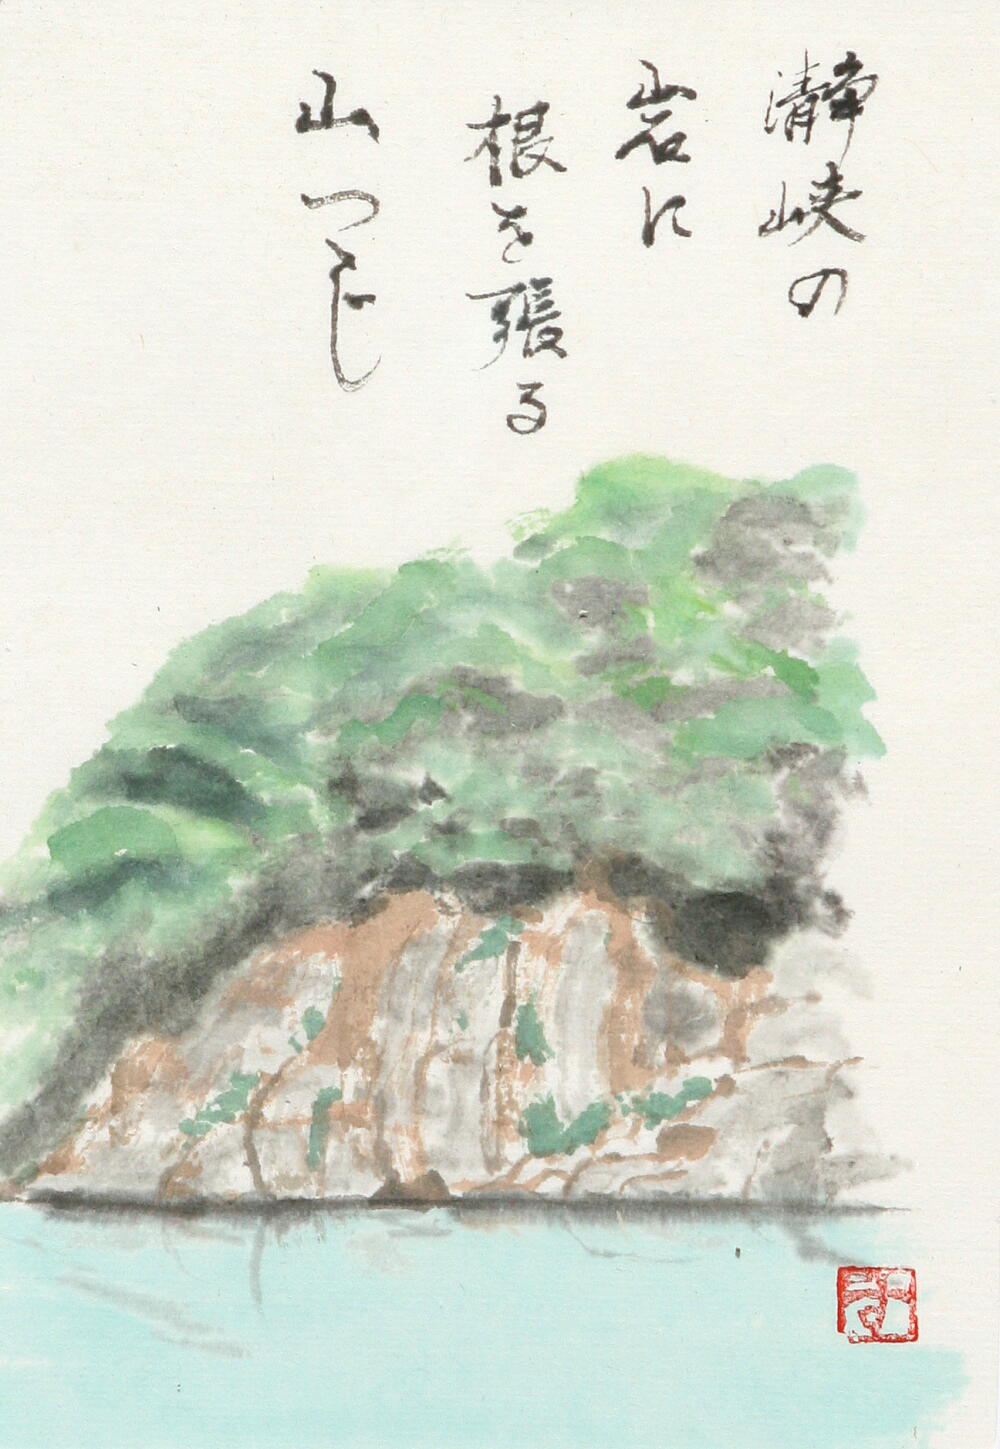 瀞峡の
岩に
根を張る
山つつじ